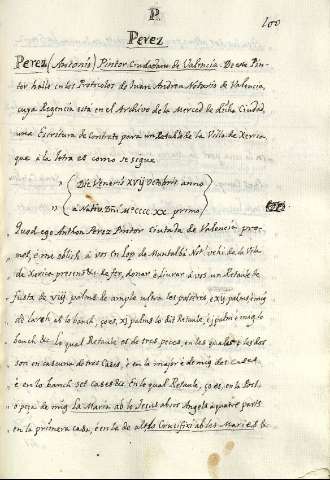 P.
100
Perez
Perez (Antonio) Pintor Ciudadano de Valencia. De este Pin-
tor halle en los Protocolos de Juan Andreu Notario de Valencia,
cuya Regencia esta en el Archivo de la Merced de dicha Ciudad,
una Escritura de Contrato para un Retablo de la Villa de Xerica
que a la letra es como se sigue
Die Veneris XVIj Octobris anno
a Nativ. Dñi Mº CCCC XX primo
Quod ego Anthon Perez Pintor Ciutada de Valencia pro-
met, è me oblich à vos en Lop de Muntalbà Notº vehi de la Vila
de Xerica present &c de fer, donar è liurar à vos un Retaule de
fusta de VIIj palms de ample ultra los polsers è XI palms è mig
de larch ab lo banch, ço es, XI palms lo dit Retaule, è j palm è mig lo
banch &c Lo qual Retaule es de tres peces, en les quals
son en cascuna de tres Cases, è en la major è de mig dos cases,
è en lo banch set cases &c En lo qual Retaule, ço es, en la Post
o peça de mig La Maria ab lo Jesus ab Angels a quatre parts
en la primera casa, è en la de alt lo Crucifixi ab les Maries &c